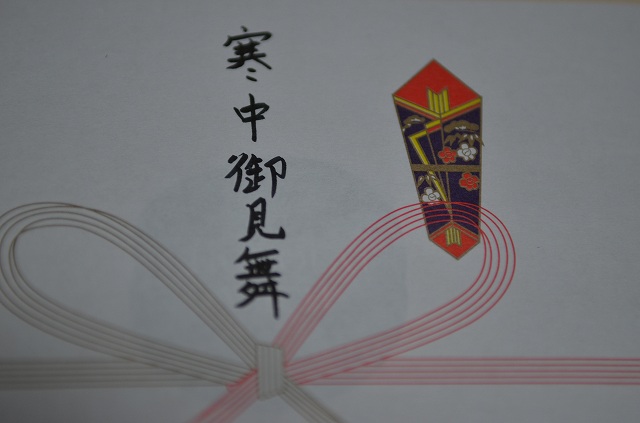 寒中御見舞